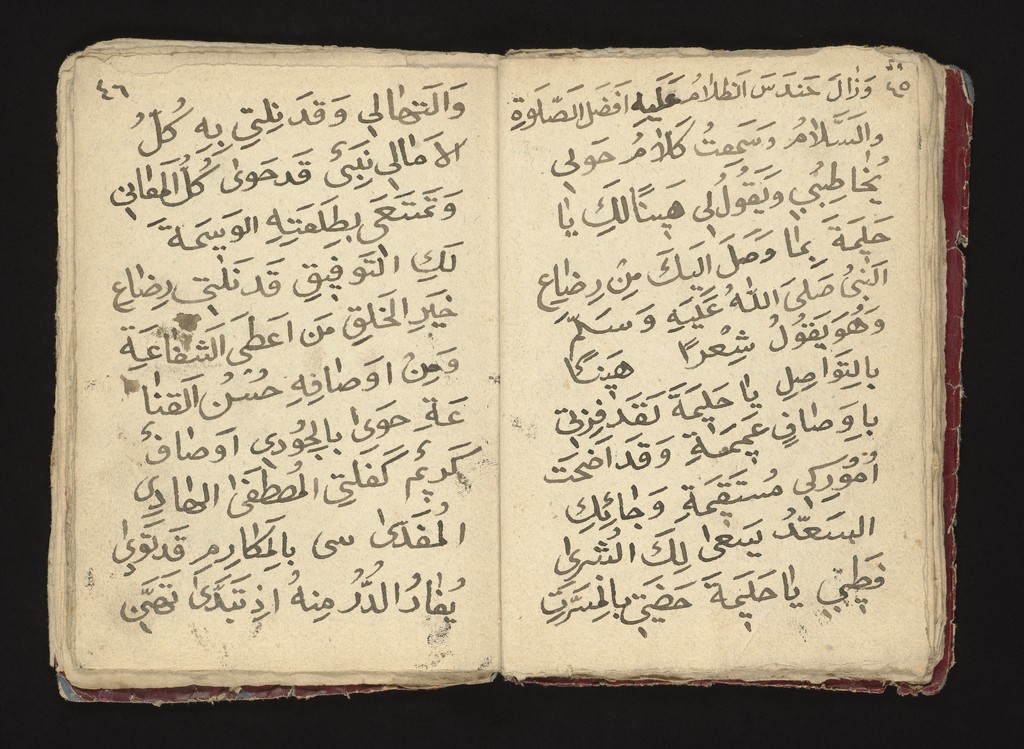 ٤٥
وَزٰالَ حَندَسَ الظلامُ عَلَيهِ افضَل الصَّلَوةِ
والسَّلامُ وسَمِعتُ كَلامُ حَولي
يُخاطِبُني ويَقُولُ لي هَنيئًا لَكِ يا
حَليمَةَ بِما وَصَلَ اِلَيكَ مِنْ رِضاعِ
النَبيُ صَلىَ اللهُ عَلَيهِ وَسَلَّم
وَهُوَ يَقُولُ شِعْراً هَنيئًا
بالتَواصِلِ يا حَليمَةَ لَقَد فِزتي
باوصافٍ عَميمَةٍ وَقَد اَضحَت
اُمُورِكي مُستَقيمَةٍ وَجائِكِ
السَعدُ يَسعىٰ لِكَ البُشرىٰ
فَطِبي يا حَليمَةَ حَضَتي بالمِسَرَّتِ
٤٦
وَالتَهاني وَقَد نِلتي بِهِ كُلُ
الامالي نَبيٌ قَد حَوىٰ كُلُّ المَعاني
وَتَمَتَعي بِطَلعَتِهِ الوَسيمَة
لَكِ التَوفيقِ قَد نَلتي رِضاعِ
خَيرِ الخَلقِ مَن اَعطي الشَفاعَةِ
وَمِنْ اَوصافِهِ حُسنُ القَنا
عَةِ حَوىٰ بالجُودي اَوصافٌ
كَريمٌ كَفَلتي المُصطَفىٰ الهادي
المُفَدّىٰ سى بالمَكارِمِ قَد تَوىٰ
يُغارُ الدُرُ مِنهُ اِذ تَبَدّىٰ تَهَنَّ